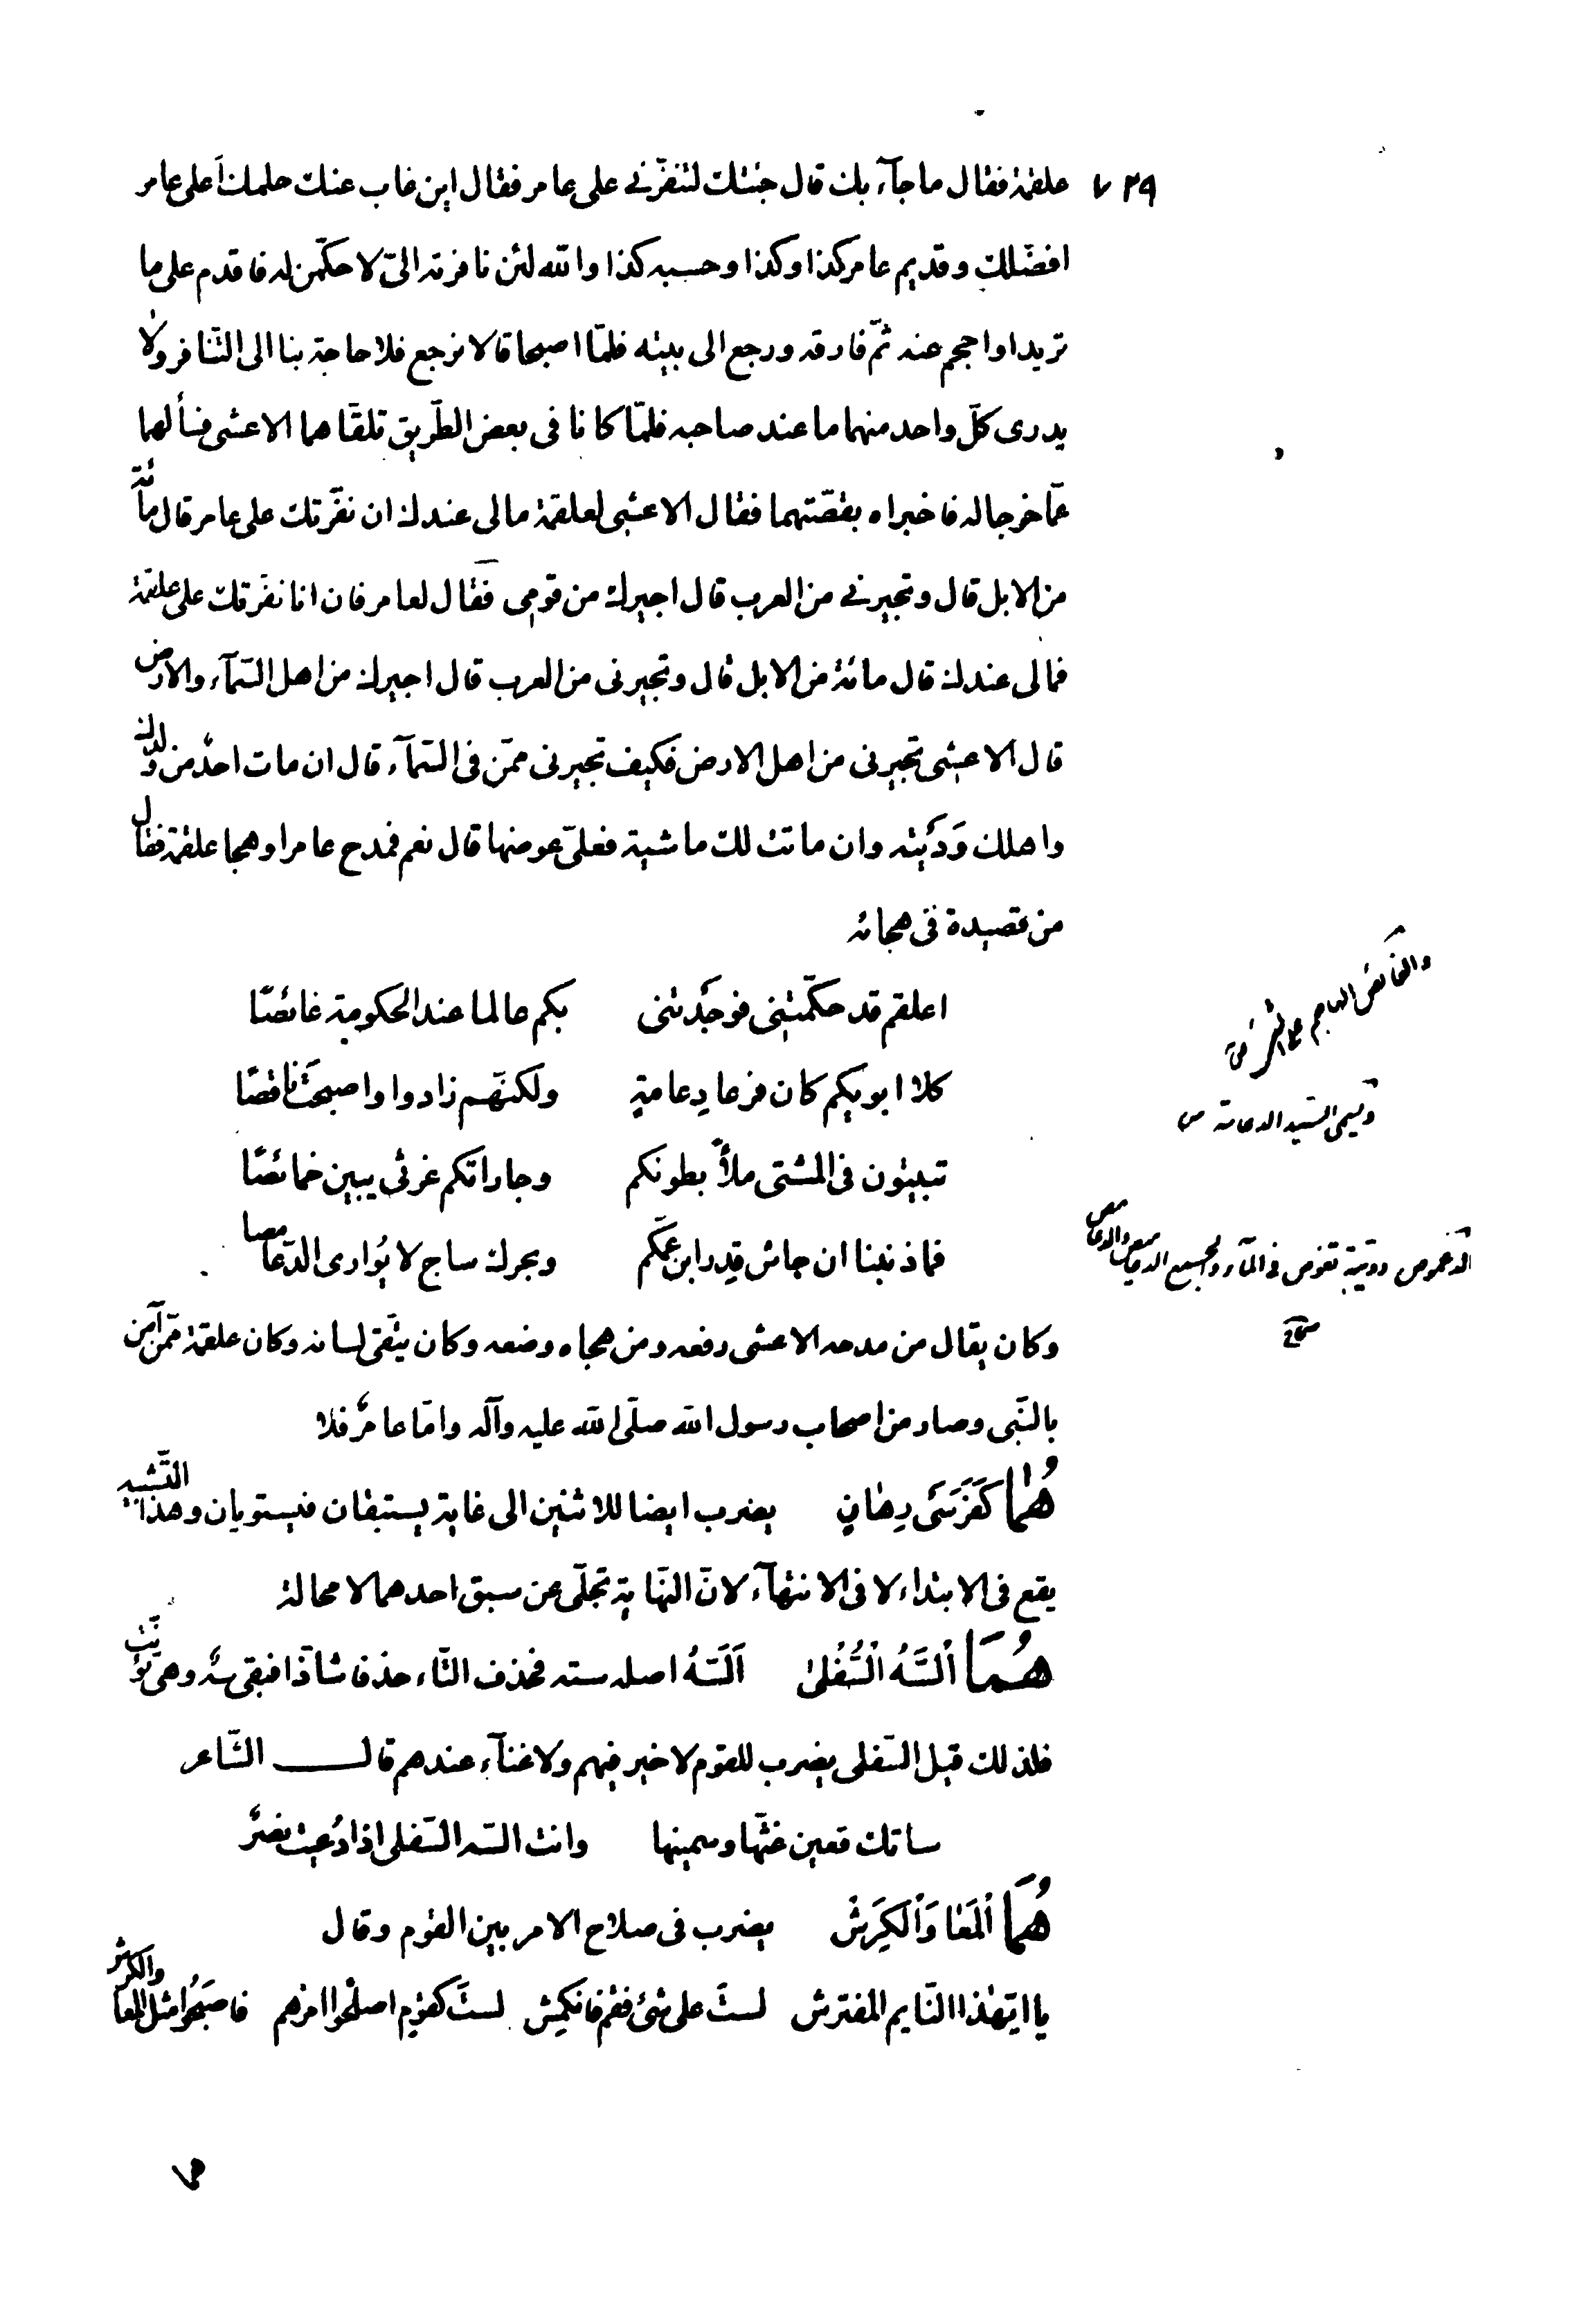 ٧٢٩
علقمة فقال ما جآء بك قال جئتك لتنفّرنى على عامر فقال اين غاب عنك حلمك أعلى عامر
افضّلك وقديم عامر كذا وكذا وحسبه كذا والله لئن نافرته الىّ لاحكّمن له فاقدم على ما
تريد او احجم عنه ثمّ فارقه ورجع الى بيته فلمّا اصبحا قالا نرجع فلا حاجة بنا الى التّنافر ولا
يدرى كلّ واحد منهما ما عند صاحبه فلمّا كانا فى بعض الطّريق تلقّاهما الاعشى فسألهما
عمّا خرجا له فاخبراه بقصّتهما فقال الاعشى لعلقمة ما لى عندك ان نفّرتك على عامر قال مائة
من الابل قال وتجيرنى من العرب قال اجيرك من قومى فقال لعامر فان انا نفّرتك على علقمة
فما لى عندك قال مائة من الابل قال وتجيرنى من العرب قال اجيرك من اهل السّمآء والارض
قال الاعشى تجيرنى من اهل الارض فكيف تجيرنى ممّن فى السّمآء قال ان مات احدٌ من ولدك
واهلك وَدَيته وان ماتت لك ماشية فعلىّ عوضها قال نعم فمدح عامرا وهجا علقمة فقال
من قصيدة فى هجائه
اعلقم قد حكّمتنى فوجَدتنى بكم عالما عند الحكومة غائصًا
كلا ابويكم كان فرعا دِعامةٍ ولكنّهم زادوا واصبحتَ ناقصًا
تبيتون فى المشتى ملأً بطونكم وجاراتكم غرثى يبين خمائصًا
فما ذنبنا ان جاش قِدر ابن عمّكم وبحرك ساج لا يُوارى الدّعامصا
وكان يقال من مدحه الاعشى رفعه ومن هجاه وضعه وكان يتّقى لسانه وكان علقمة ممّن آمن
بالنّبى وصار من اصحاب رسول الله صلّى الله عليه وآله وامّا عامرٌ فلا
هُمَا كَفَرَسَىْ رِهَانٍ يضرب ايضا للاثنين الى غاية يستبقان فيستويان وهذا التّشبيه
يقع فى الابتداء لا فى الانتهآء لانّ النّهاية تجلّى عن سبق احدهما لا محالة
هُمَا اَلسَّهُ السُّفْلىٰ اَلسَّهُ اصله سته فحذف التّاء حذفا شاذّا فبقى سهٌ وهى تؤنّث
فلذلك قيل السّفلى يضرب للقوم لا خير فيهم ولا غنآء عندهم قال الشّاعر
شاتك قعين غثّها وسمينها وانت السّه السّفلى اذا دُعيت نصرٌ
هُمَا اَلمَعَا وَاَلكِرَشُ يضرب فى صلاح الامر بين القوم وقال
يا ايّهذا النّايم المفترش لستَ على شئ فقم فانكمِش لستَ كقوم اصلحوا امرهم فاصبَحُوا مثل المعا والكرش
والغائص الهاجم على الشئ
ويسمى السّيد الدعامة
الدّعموص دويبّة تغوص فى المآء والجمع الدعاميص والدعامص
صحاح